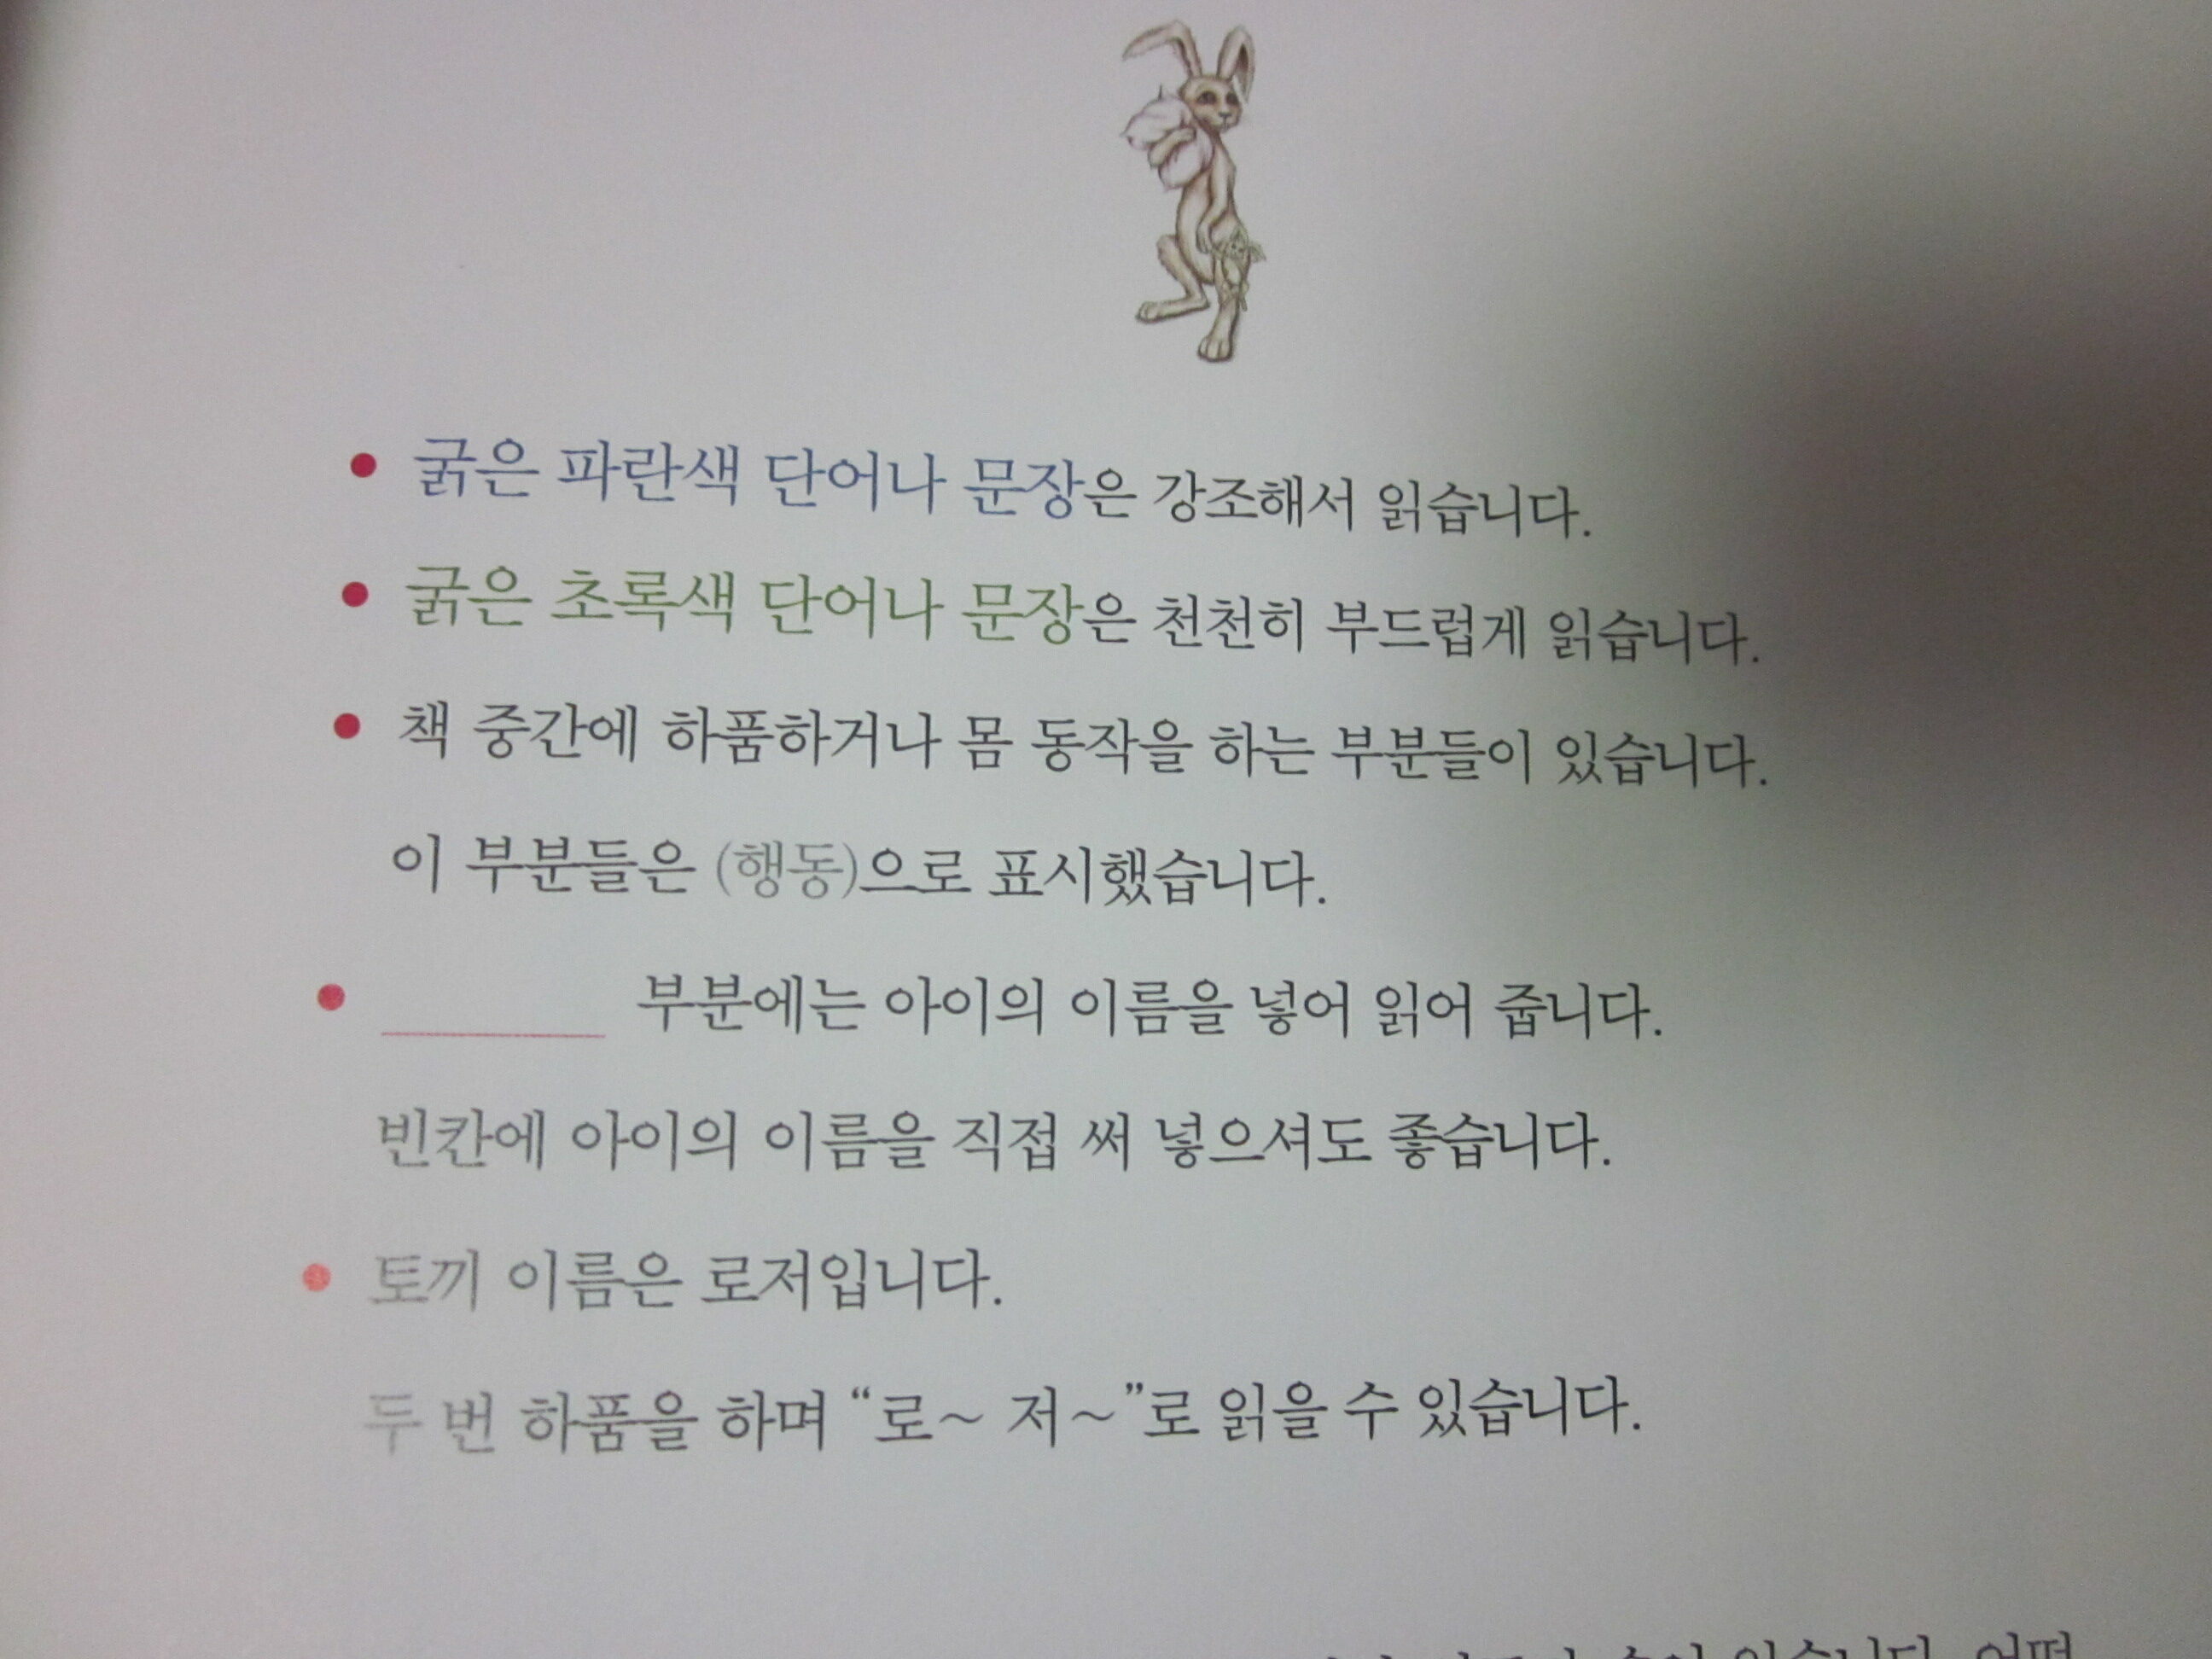 • 굵은 파란색 단어나 문장은 강조해서 읽습니다.
• 굵은 초록색 단어나 문장은 천천히 부드럽게 읽습니다.
• 책 중간에 하품하거나 몸 동작을 하는 부분들이 있습니다.
이 부분들은 (행동)으로 표시했습니다.
• ______ 부분에는 아이의 이름을 넣어 읽어 줍니다.
빈칸에 아이의 이름을 직접 써 넣으셔도 좋습니다.
• 토끼 이름은 로저입니다.
두 번 하품을 하며 “로~ 저~”로 읽을 수 있습니다.
있습니다. 어떤